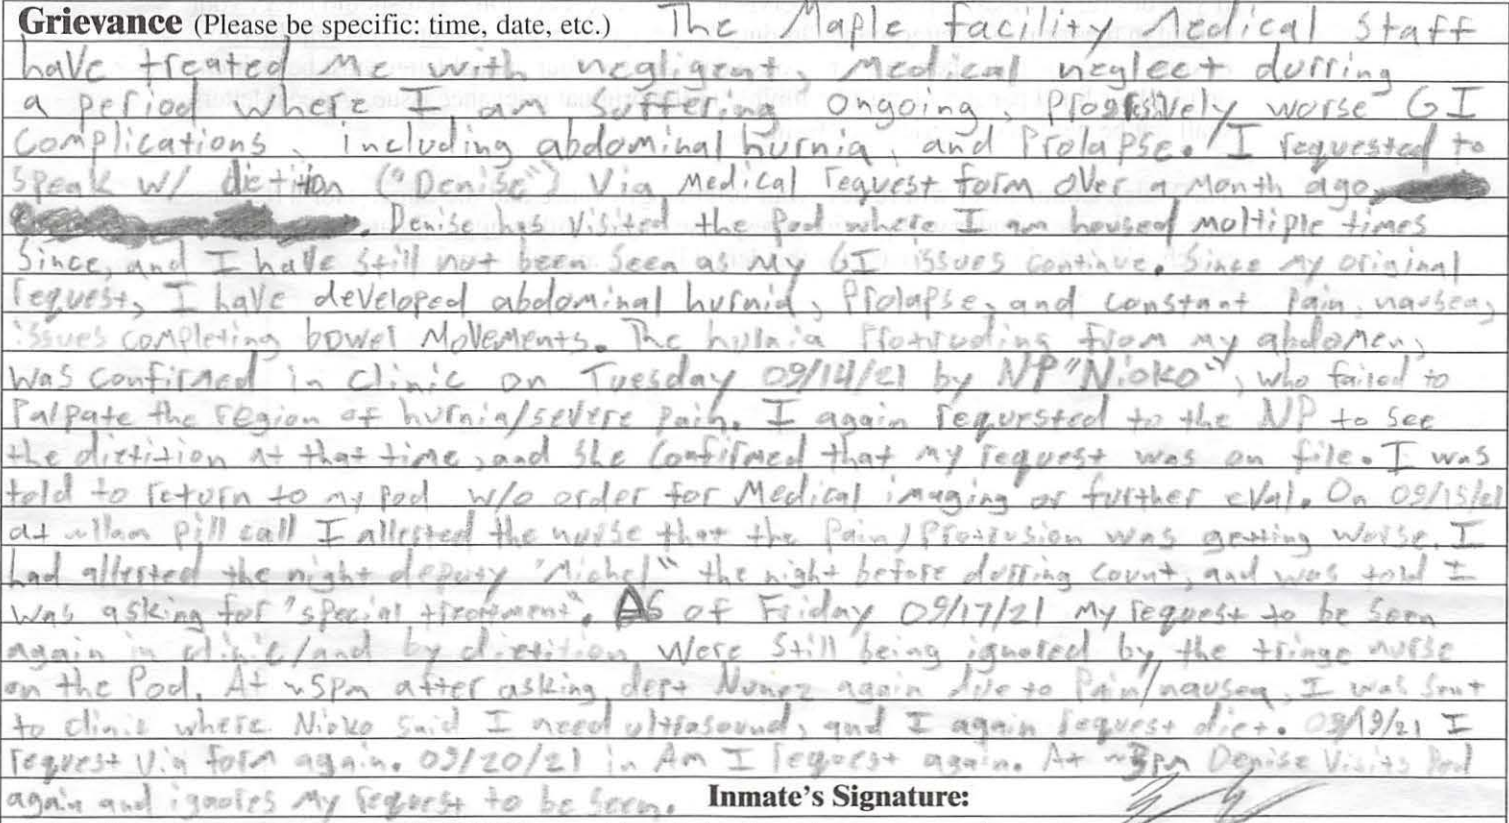 Grievance (Please be specific: time, date, etc.) The Maple facility Medical Staff
have treated me with negligent, Medical neglect durring
a period where I am suffering ongoing, progressively worse GI
complications, including abdominal hurnia, and Prolapse. I requested to
speak w/ dietition ("Denise") Via Medical request form over a month ago
. Denise has visited the Pod where I am housed moltiple times
since, and I have still not been seen as my GI issues continue. Since my original
request, I have developed abdominal hurnia, Prolapse, and constant Pain, nausea,
issues completing bowel Movements. The hurnia Protruding from my abdomen,
was confirmed in clinic on Tuesday 09/14/21 by NP "Nioko", who failed to
Palpate the region of hurnia/severe pain. I again requested to the NP to see
the dietition at that time, and she confirmed that my request was on file. I was
told to return to my pod w/o order for Medical imaging or further eval. On 09/15/21
at ~11am pill call I allerted the nurse that the Pain/Protrusion was getting worse. I
had allerted the night deputy "Michel" the night before durring count, and was told I
was asking for "special treatment". As of Friday 09/17/21 my request to be seen
again in clinic/and by dietition were still being ignored by the triage nurse
on the Pod. At ~5pm after asking dept Nunez again due to Pain/nausea, I was sent
to clinic where Nioko said I need ultrasound, and I again request diet. 09/19/21 I
request Via form again. 09/20/21 in Am I request again. At ~3pm Denise Visits Pod
again and ignores my request to be seen. Inmate's Signature: